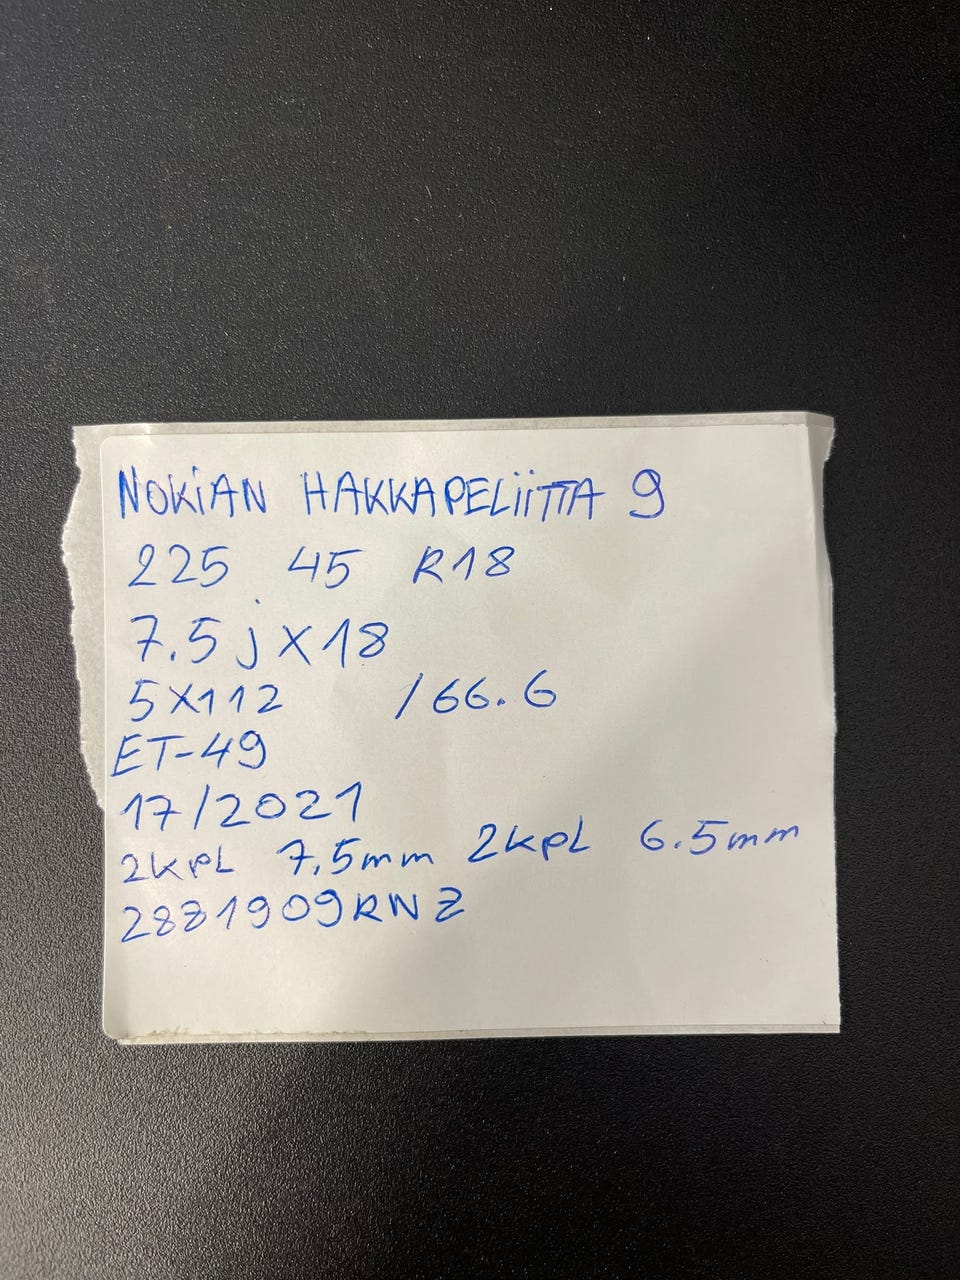 NOKiAN HAKKAPELiiTTA 9
225 45 R18
7.5jX18
5X112 /66.6
ET-49
17/2021
2kpL 7,5mm 2kpL 6.5mm
2881909RNZ